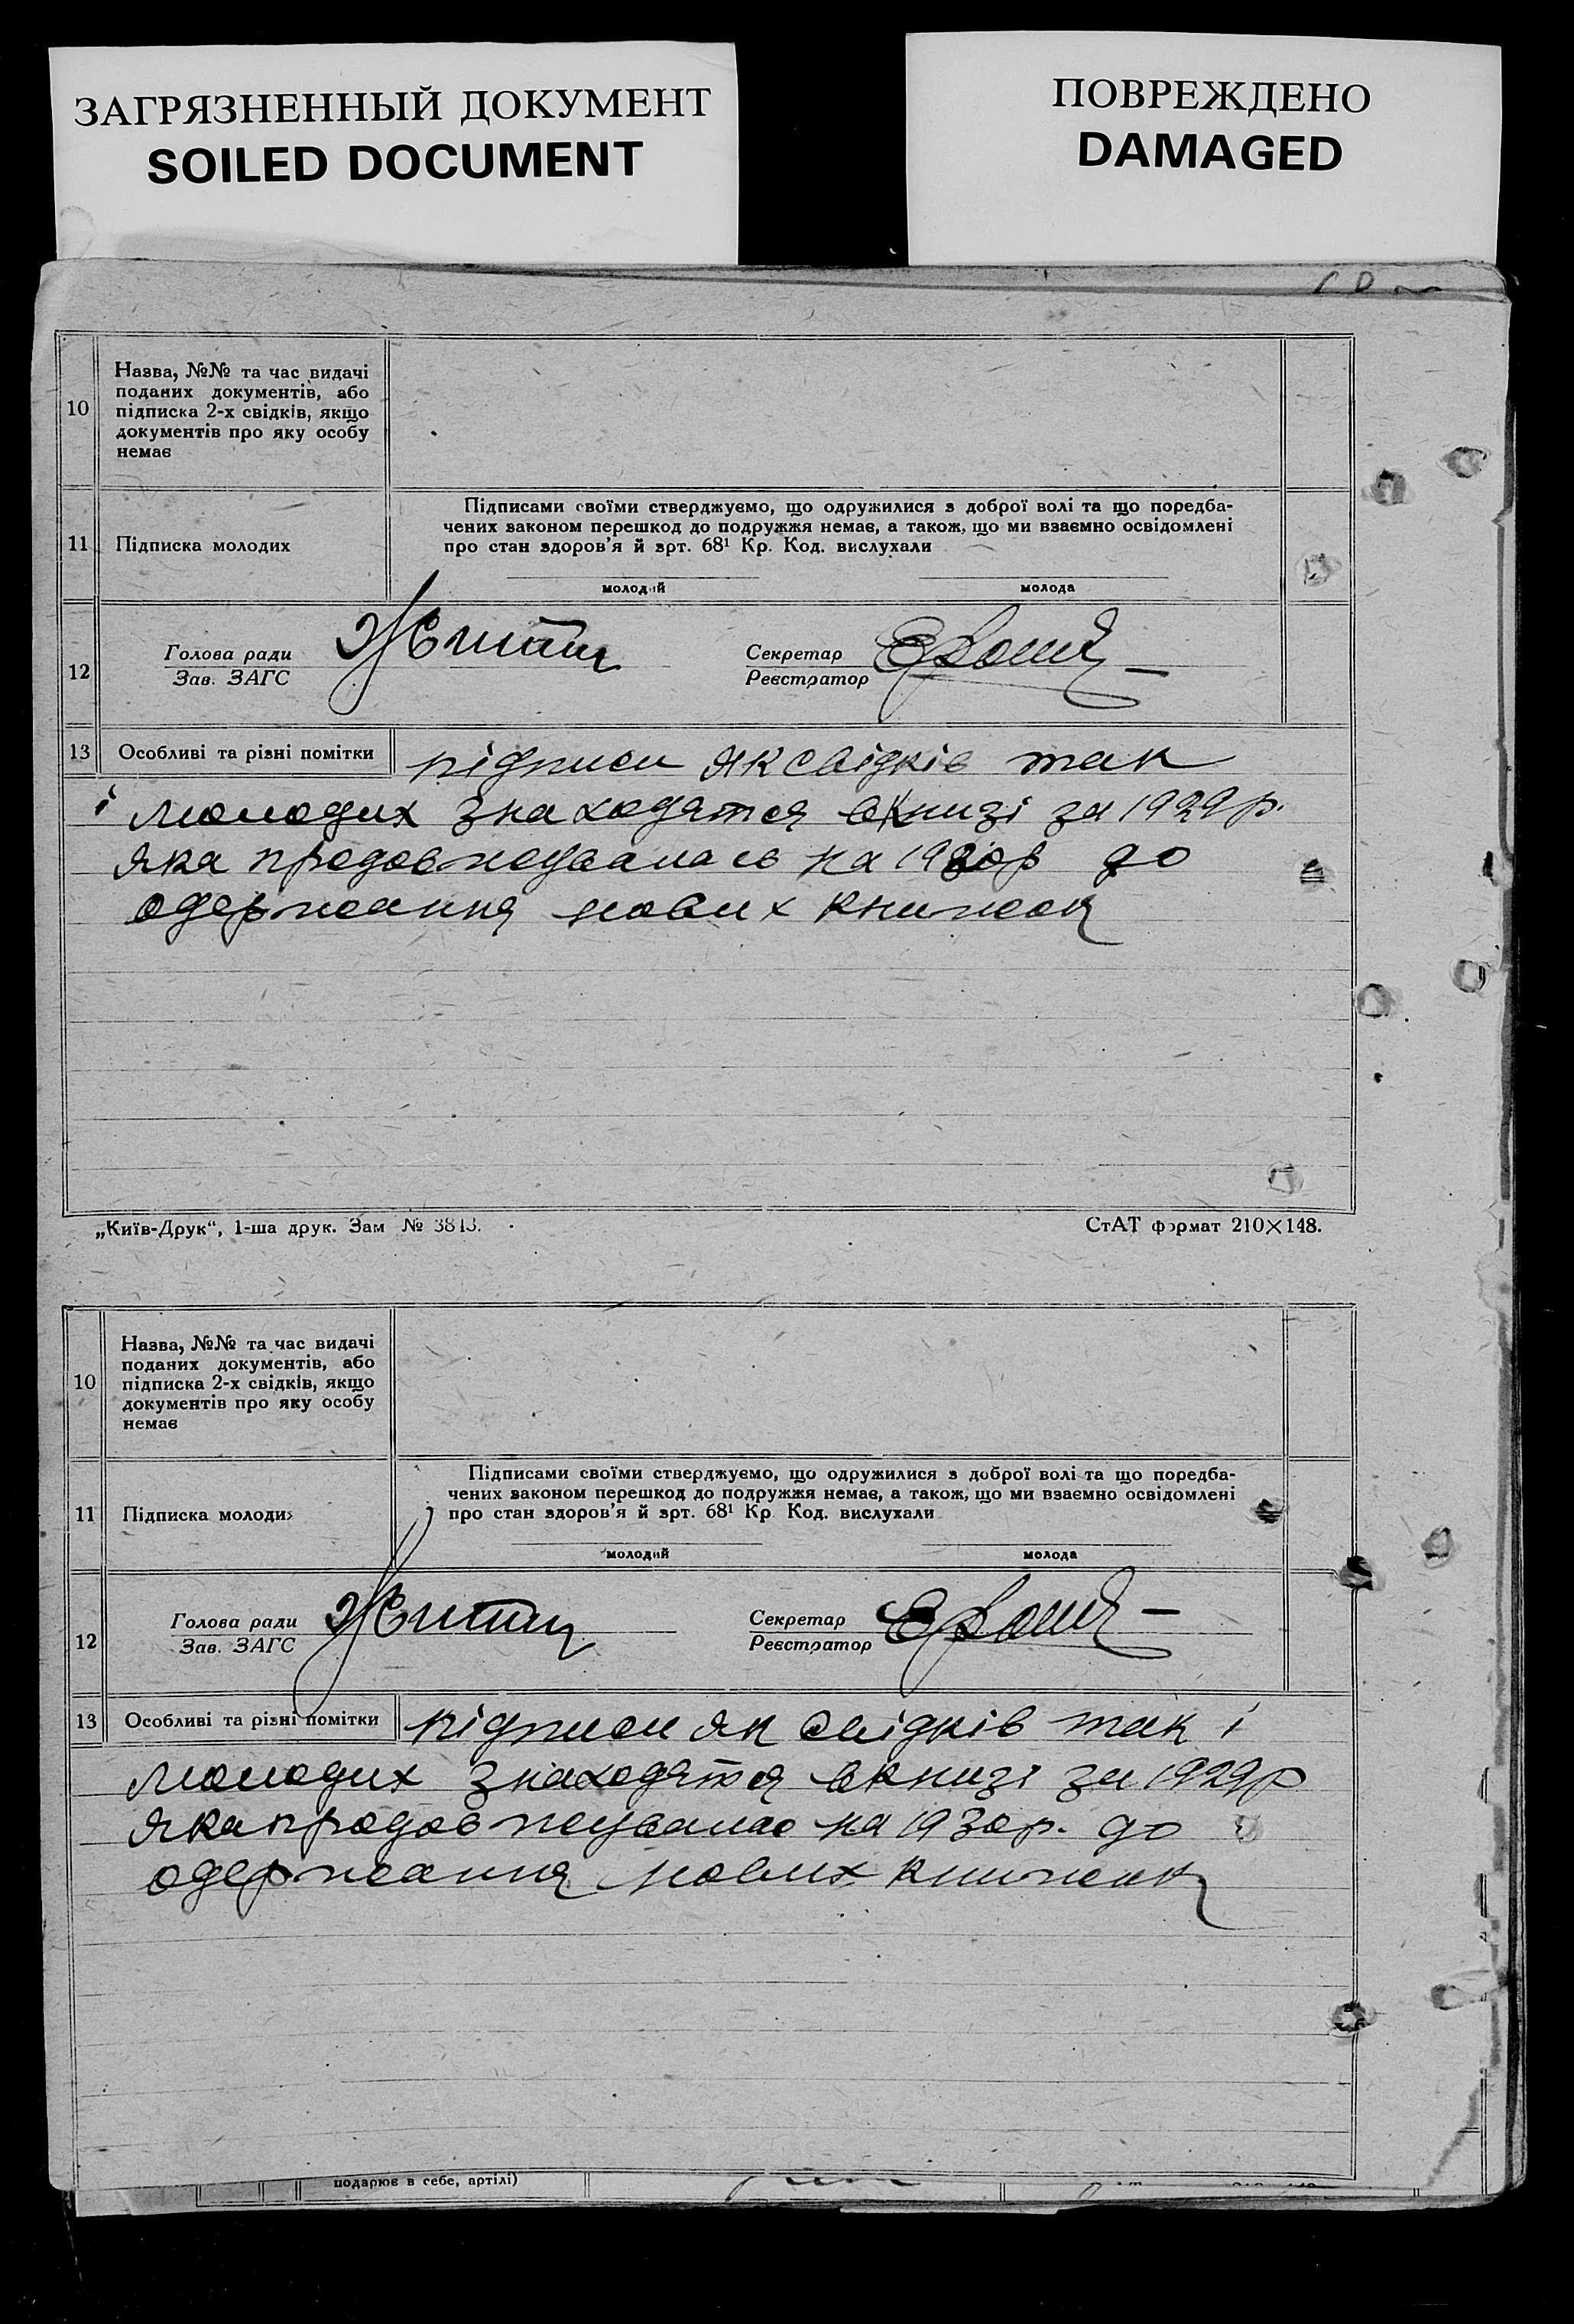 ЗАГРЯЗНЕННЫЙ ДОКУМЕНТ
SOILED DOCUMENT
ПОВРЕЖДЕНО
DAMAGED
10
Назва, №№ та час видачі
поданих документів, або
підписка 2-х свідків, якщо
документів про яку особу
немає
11
Підписка молодих
Підписами своїми стверджуємо, що одружилися з доброї волі та що поредба-
чених законом перешкод до подружжя немає, а також, що ми взаємно освідомлені
про стан здоров'я й арт. 68¹ Кр. Код. вислухали
молодий
молода
12
Голова ради
Зав. ЗАГС
Секретар
Реєстратор
13 Особливі та різні помітки
підписи як свідків так
і молодих знаходятся в книзі за 1929 р.
яка продовжувалась на 1930 р до
одержання нових книжок
„Київ-Друк“, 1-ша друк. Зам № 3813.
СтАТ формат 210×148.
10
Назва, №№ та час видачі
поданих документів, або
підписка 2-х свідків, якщо
документів про яку особу
немає
11
Підписка молодих
Підписами своїми стверджуємо, що одружилися з доброї волі та що поредба-
чених законом перешкод до подружжя немає, а також, що ми взаємно освідомлені
про стан здоров'я й арт. 68¹ Кр Код. вислухали
молодий
молода
12
Голова ради
Зав. ЗАГС
Секретар
Реєстратор
13 Особливі та різні помітки
підписи як свідків так і
молодих знаходятся в книзі за 1929 р
яка продовжувалас на 1930 р. до
одержання нових книжок
подарює в себе, артілі)